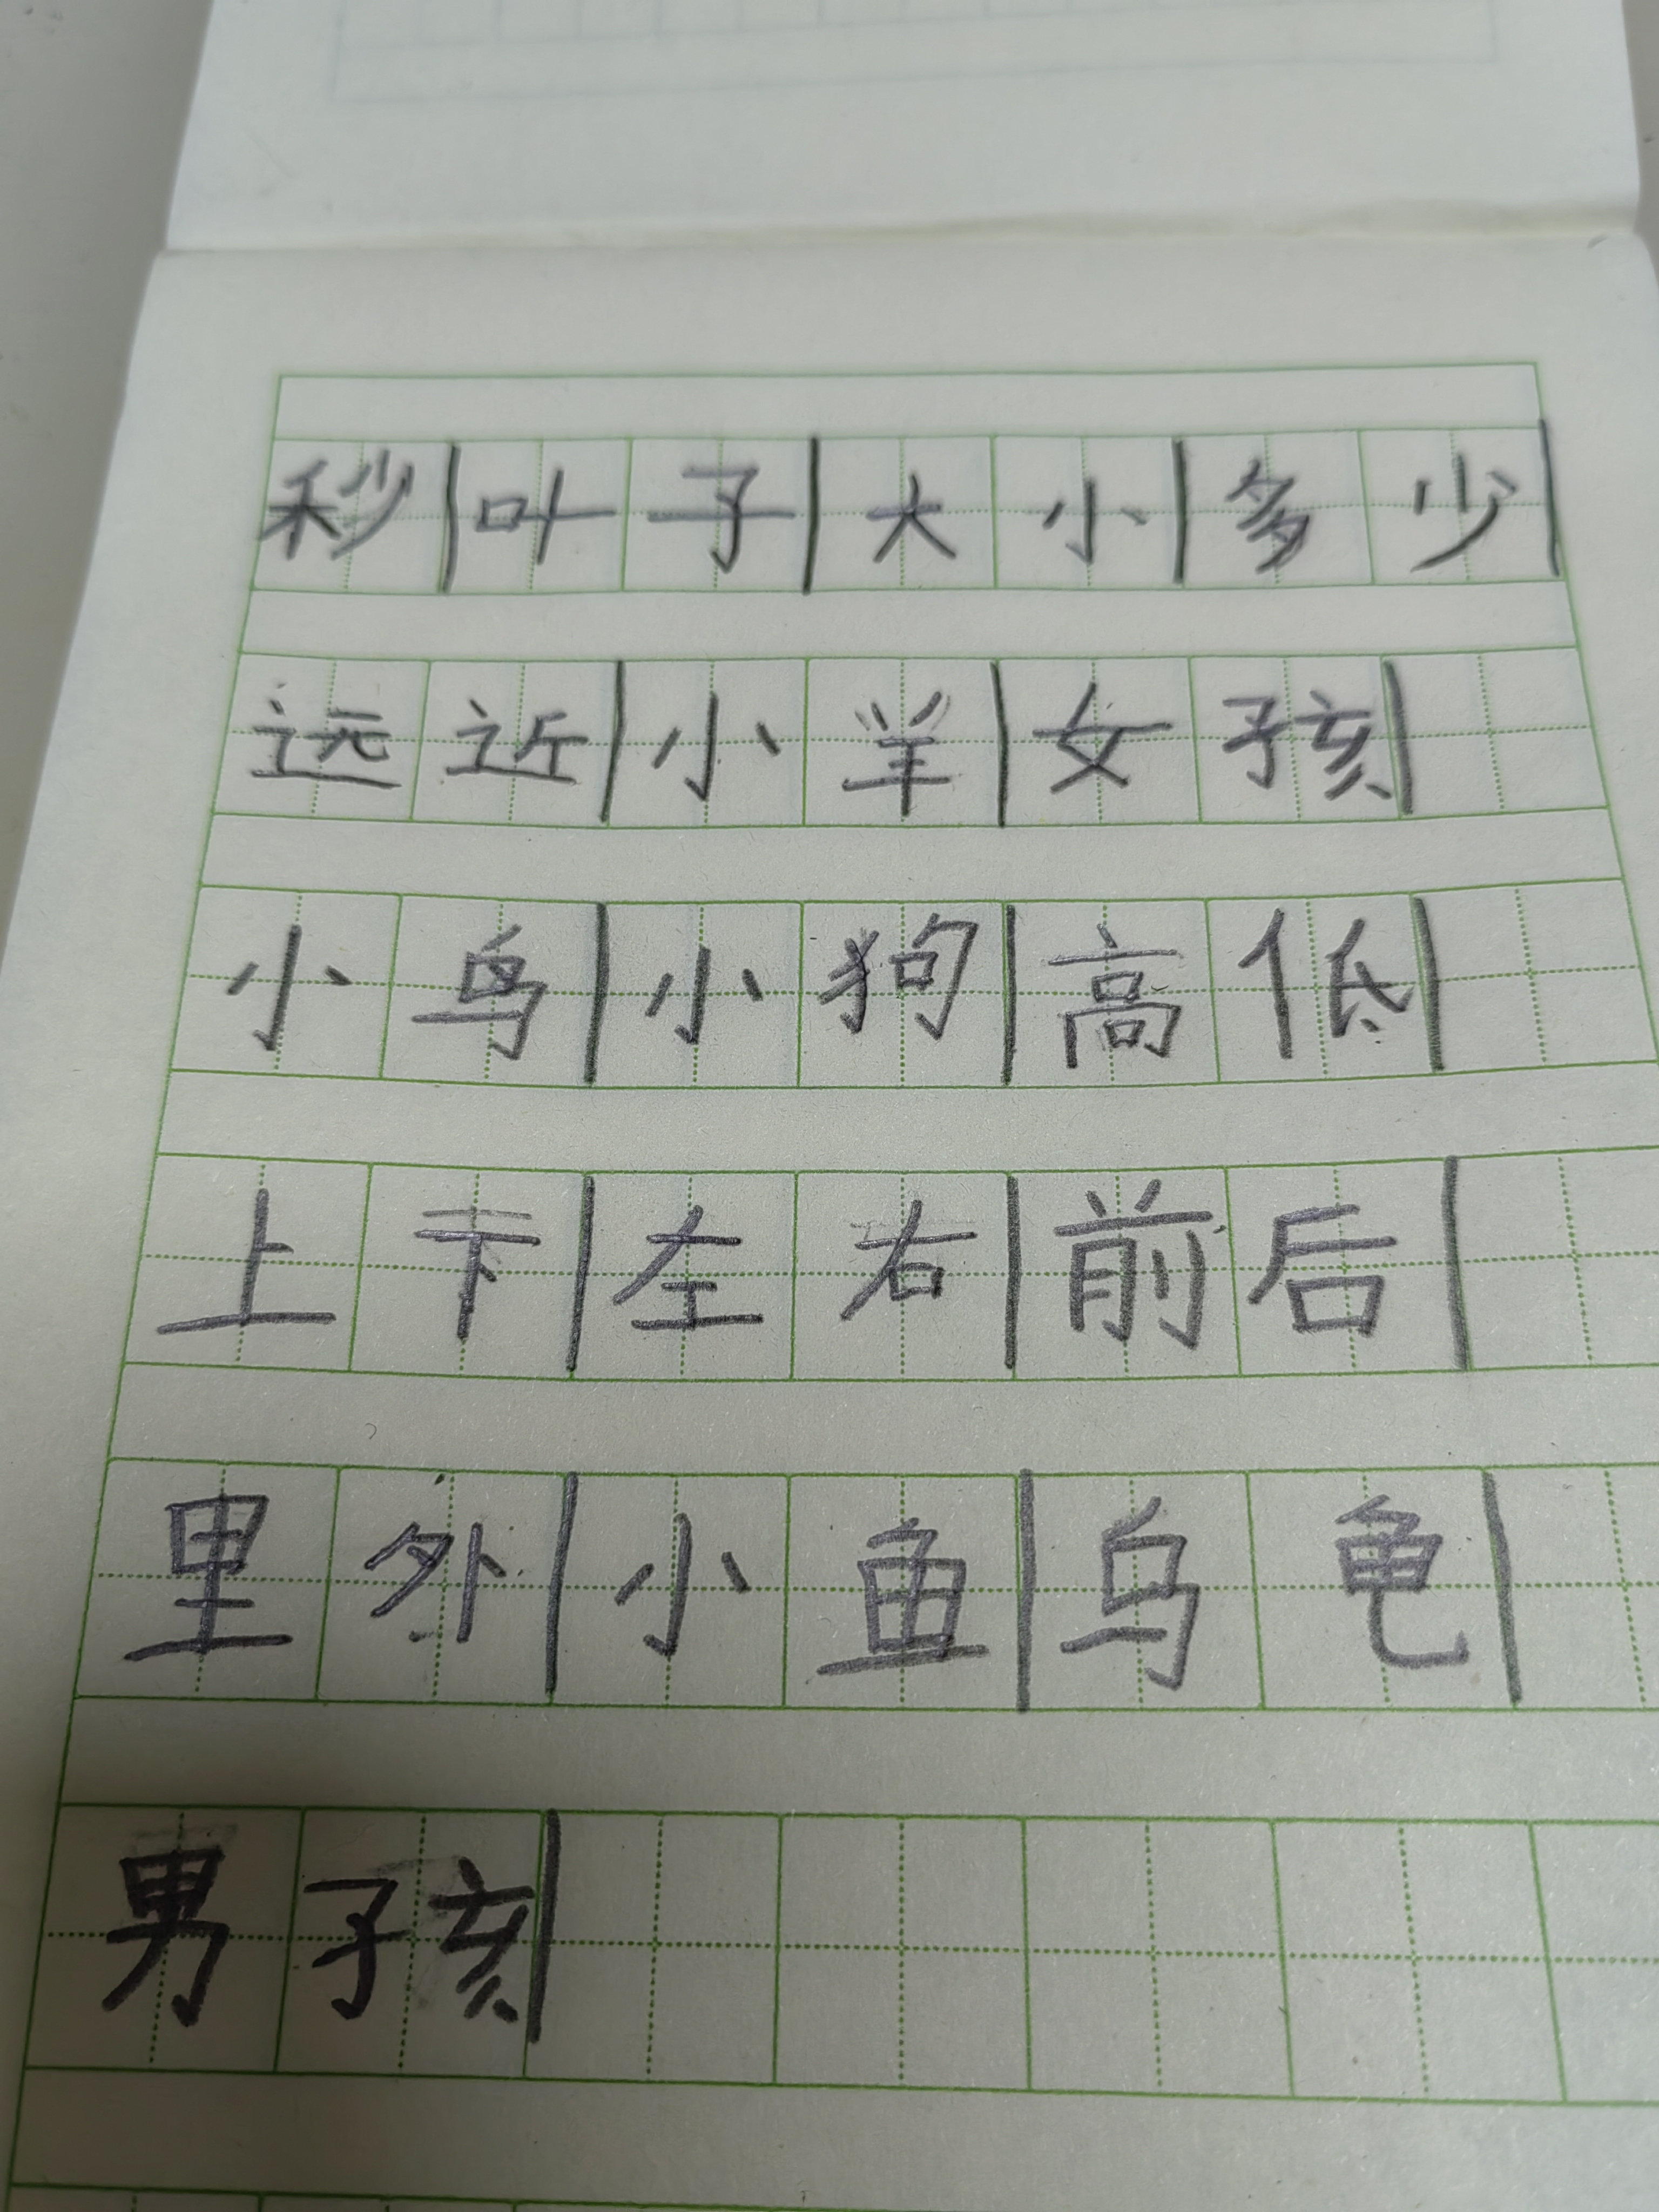 秒|叶子|大小|多少|
远近|小羊|女孩|
小鸟|小狗|高低|
上下|左右|前后|
里外|小鱼|乌龟|
男孩|